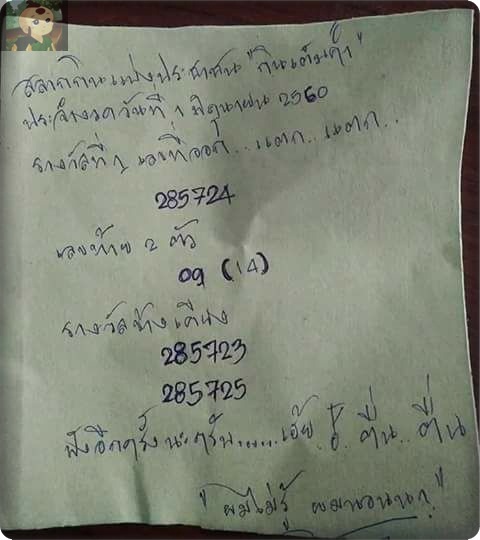 สลากกินแบ่งประชาชน "กินเต็มคำ"
ประจำงวดวันที่ 1 มิถุนายน 2560
รางวัลที่ 1 เลขที่ออก...แตก...แตก..
285724
เลขท้าย 2 ตัว
09 (14)
รางวัลข้างเคียง
285723
285725
ฟังอีกครั้งนะครับ.....เฮ้ย ตื่น..ตื่น
"ผมไม่รู้ ผมนอนนา"